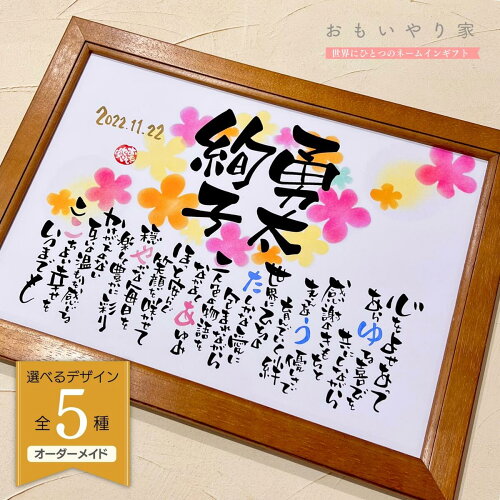 おもいやり家
世界にひとつのネームインギフト
2022.11.22
勇太
絢子
心をよせあって
あらゆる喜びを
共にしながら
感謝のきもちと
優しさで
育んでいく絆
世界にひとつの
たしかな愛に
包まれながら
二人の物語を
ほっと安らぐ
笑顔を咲かせて
穏やかな毎日を
楽しく豊かに彩り
かけがえのない
互いの温もりを感じ
ここにある幸せを
いつまでも
選べるデザイン
全5種
オーダーメイド